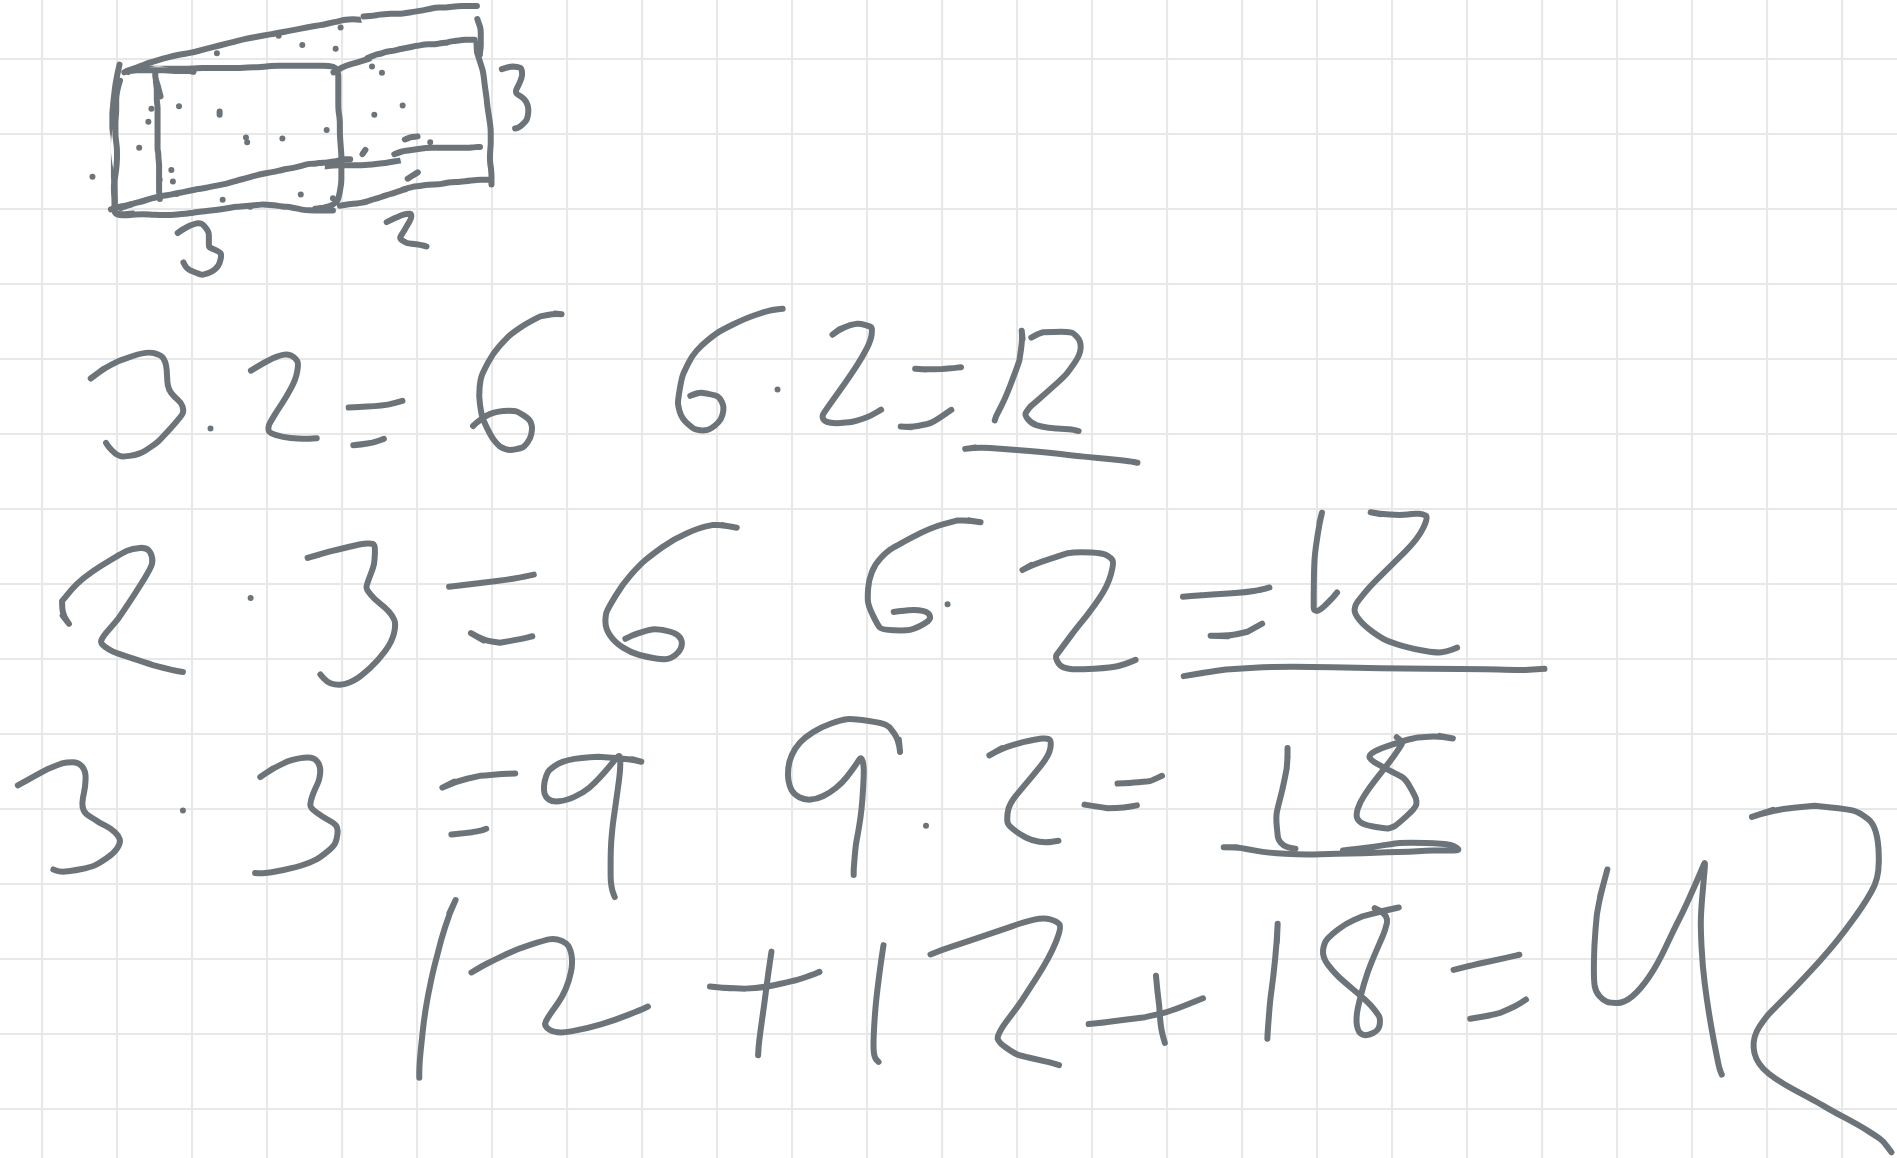 3
3 2
3 · 2 = 6 6 · 2 = 12
2 · 3 = 6 6 · 2 = 12
3 · 3 = 9 9 · 2 = 18
12 + 12 + 18 = 42